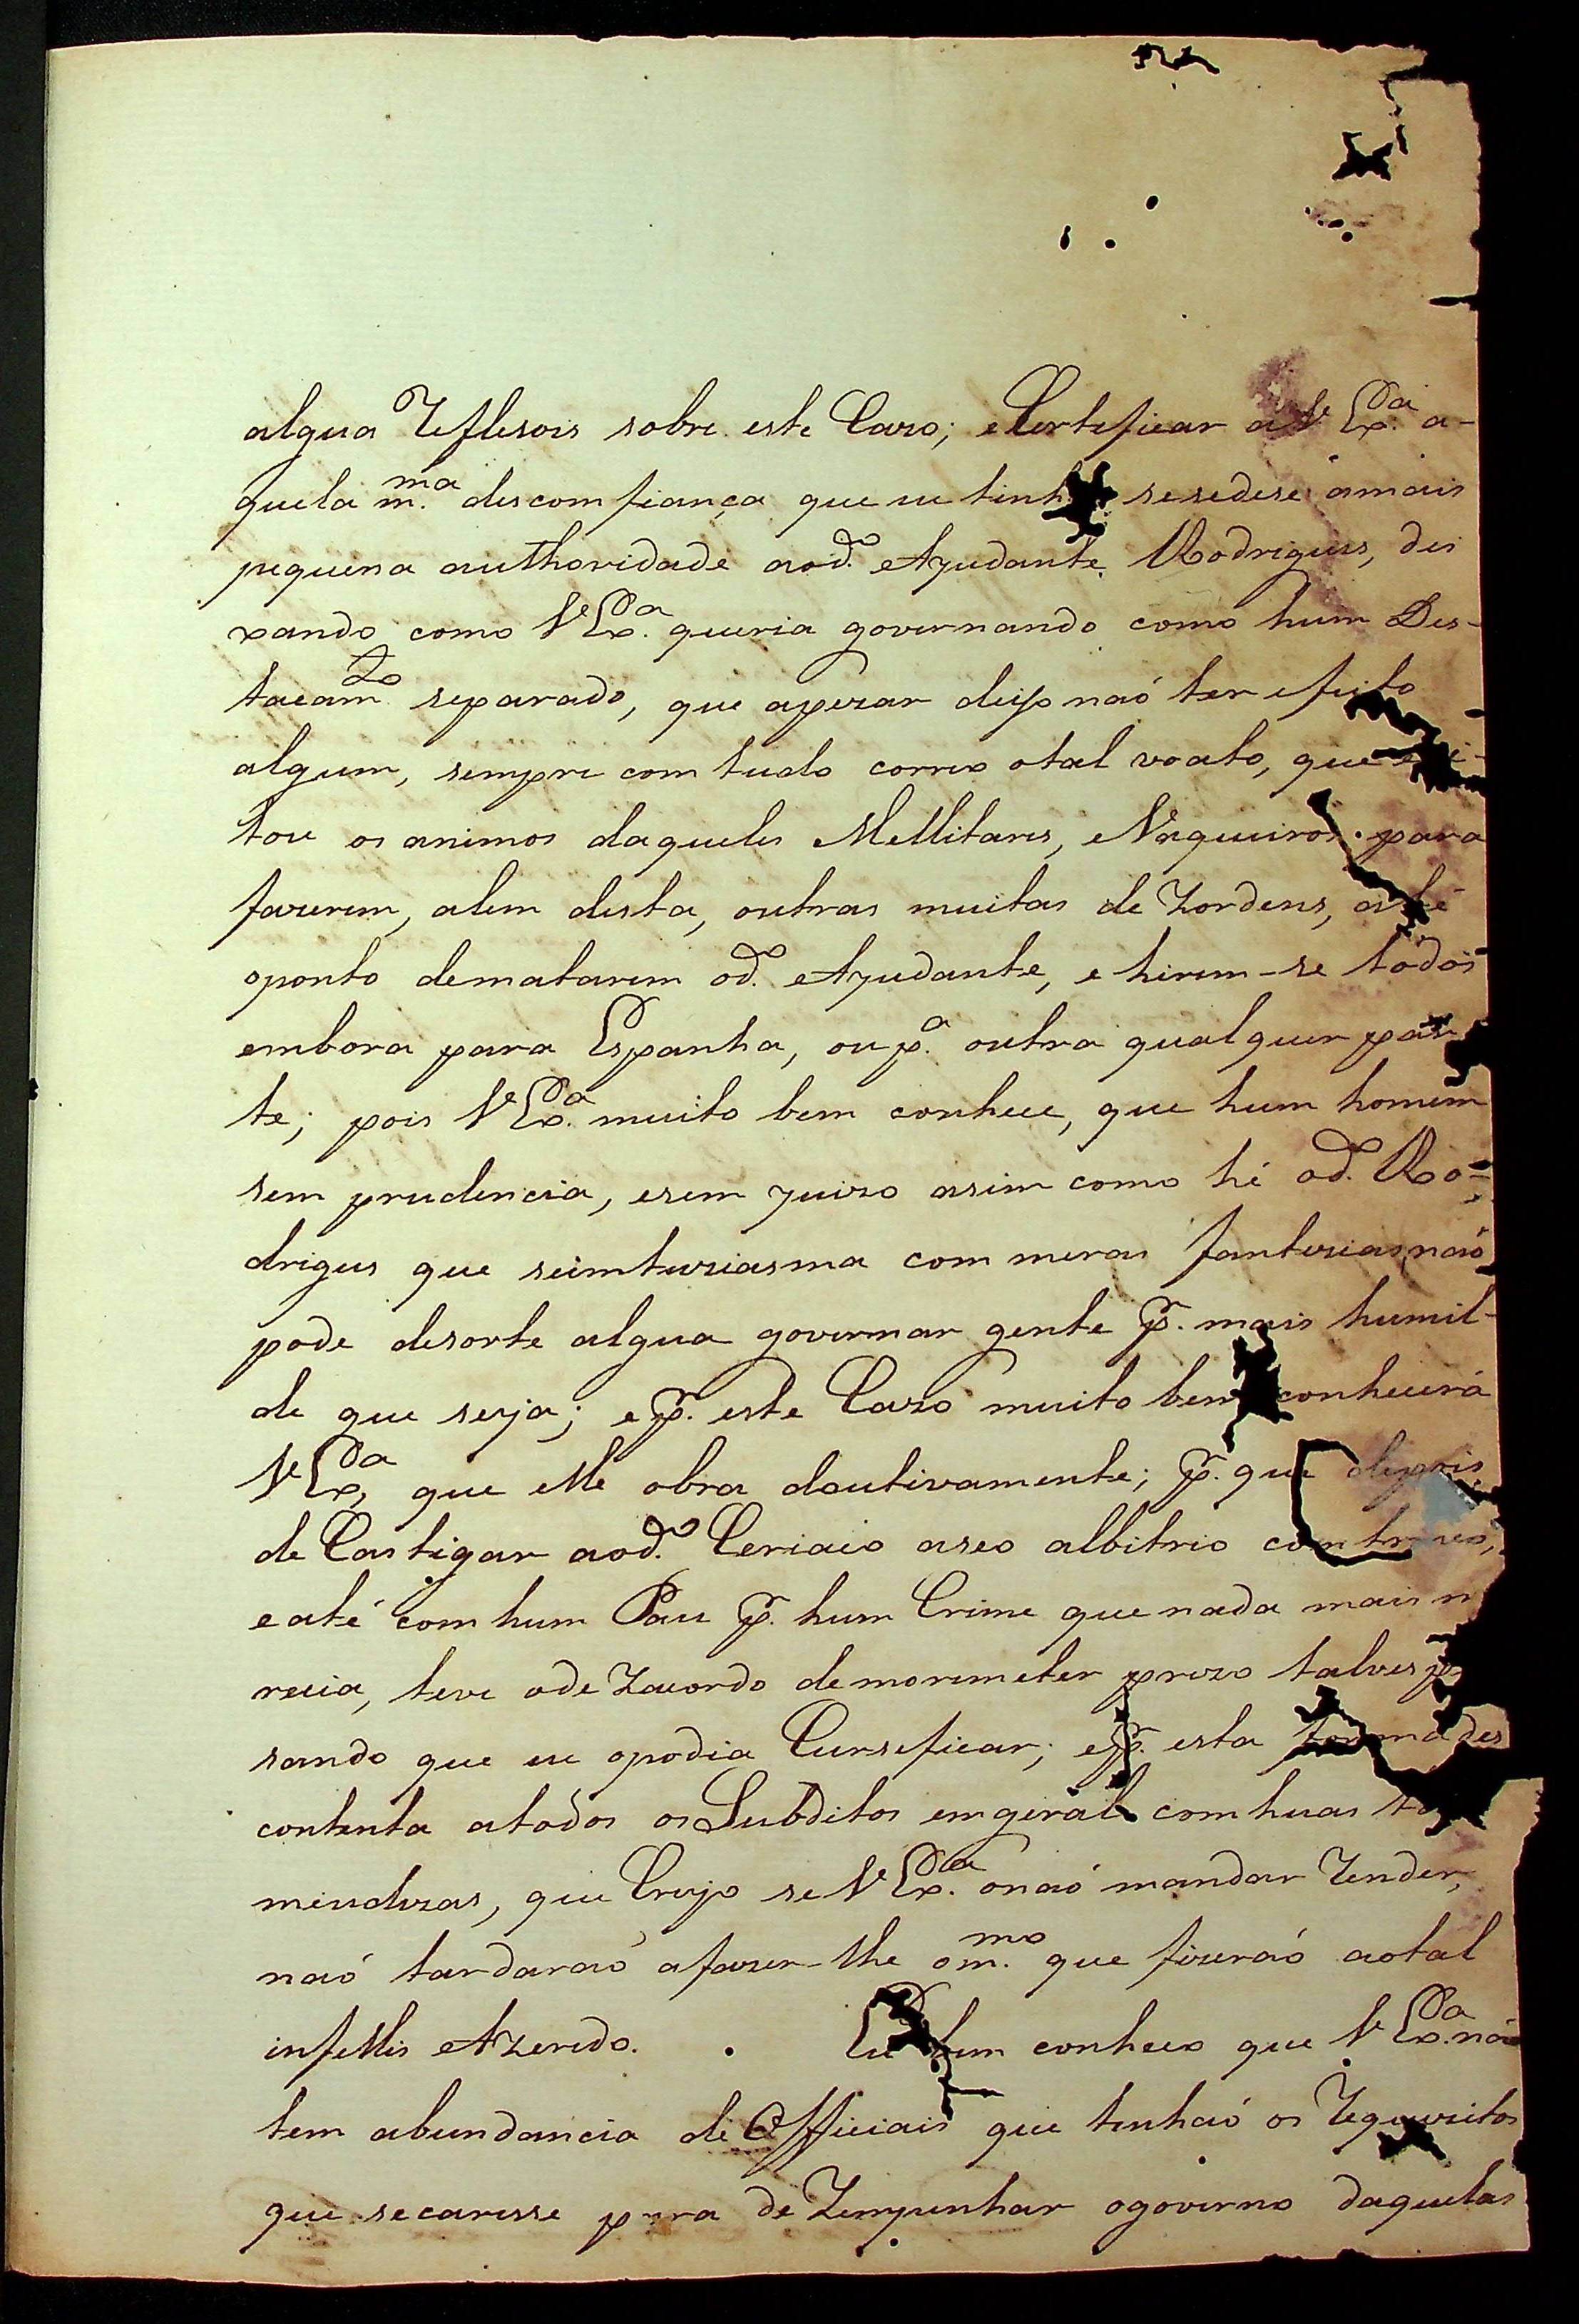 algua Reflesois sobre este Cazo; e Certeficar a V Ex.ᵃ a-
quela m.ᵐᵃ descomfiança que eu tinha se sedese amais
pequena authoridade aod.º Ajudante Rodrigues, dei
xando como V Ex.ᵃ queria governando como hum Des-
tacam.ᵗᵒ separado, que apezar diso naó ter efeito
algum, sempre com tudo correo otal voato, que
tou os animos daqueles Mellitares, e Vaqueiros para
fazerem, alem desta, outras muitas deZordens, athé
oponto dematarem od.º Ajudante, e hirem-se todos
embora para Espanha, ou p.ᵃ outra qualquer par
te; pois V Ex.ᵃ muito bem conhece, que hum homem
sem prudencia, esem juizo asim como hé od.º Ro-
drigues que seimtuziasma com meras fantezias naó
pode desorte algua governar gente p.ʳ mais humil-
de que seja; e p.ʳ este Cazo muito bem conhecerá
V Ex.ᵃ, que elle obra doutivamente; p.ʳ que depois
de Castigar aod.º Ceriaco aseo albitrio com
e até com hum Pau p.ʳ hum Crime que nada mais m
recia, teve odeZacordo demoremeter prezo talves p
sando que eu opodia Curseficar; e p.ʳ esta forma des
contenta atodos os Subditos emgeral com huas
meudezas, que Creyo se V Ex.ᵃ onaó mandar Render,
naó tardaraó afazer-lhe om.ᵐᵒ que fizeraó aotal
infellis Azeredo. Eu bem conheco que V Ex.ᵃ naó
tem abundancia de Officiais que tenhaó os Requezitos
que secaresse para deZempenhar ogoverno daquelas